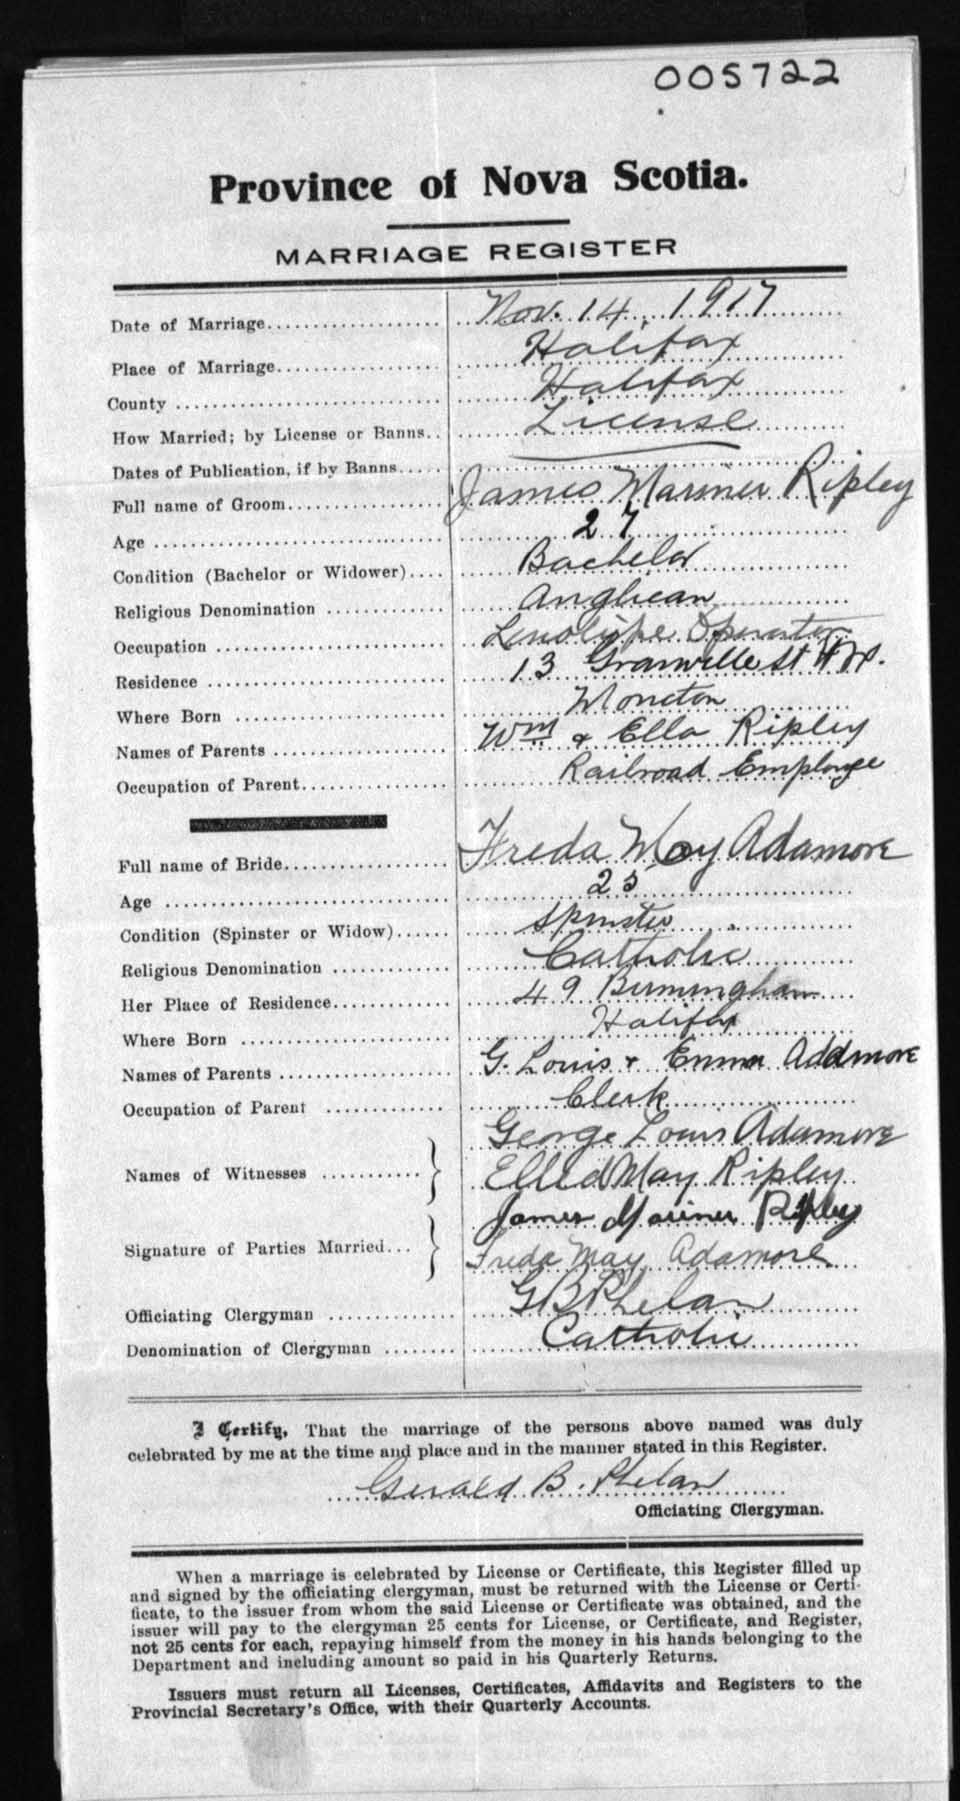 005722
Province of Nova Scotia.
MARRIAGE REGISTER
Date of Marriage Nov. 14, 1917
Place of Marriage Halifax
County Halifax
How Married; by License or Banns License
Dates of Publication, if by Banns
Full name of Groom James Mariner Ripley
Age 27
Condition (Bachelor or Widower) Bachelor
Religious Denomination Anglican
Occupation Linotype Operator
Residence 13 Granville St Hfx.
Where Born Moncton
Names of Parents Wm & Ella Ripley
Occupation of Parent Railroad Employee
Full name of Bride Freda May Adamore
Age 25
Condition (Spinster or Widow) Spinster
Religious Denomination Catholic
Her Place of Residence 49 Birmingham
Where Born Halifax
Names of Parents G. Louis & Emma Adamore
Occupation of Parent Clerk
George Louis Adamore
Names of Witnesses May Ripley
James Mariner Ripley
Signature of Parties Married Freda May Adamore
Officiating Clergyman G B Phelan
Denomination of Clergyman Catholic
I Certify, That the marriage of the persons above named was duly
celebrated by me at the time and place and in the manner stated in this Register.
Gerald B. Phelan
Officiating Clergyman.
When a marriage is celebrated by License or Certificate, this Register filled up
and signed by the officiating clergyman, must be returned with the License or Certi-
ficate, to the issuer from whom the said License or Certificate was obtained, and the
issuer will pay to the clergyman 25 cents for License, or Certificate, and Register,
not 25 cents for each, repaying himself from the money in his hands belonging to the
Department and including amount so paid in his Quarterly Returns.
Issuers must return all Licenses, Certificates, Affidavits and Registers to the
Provincial Secretary's Office, with their Quarterly Accounts.